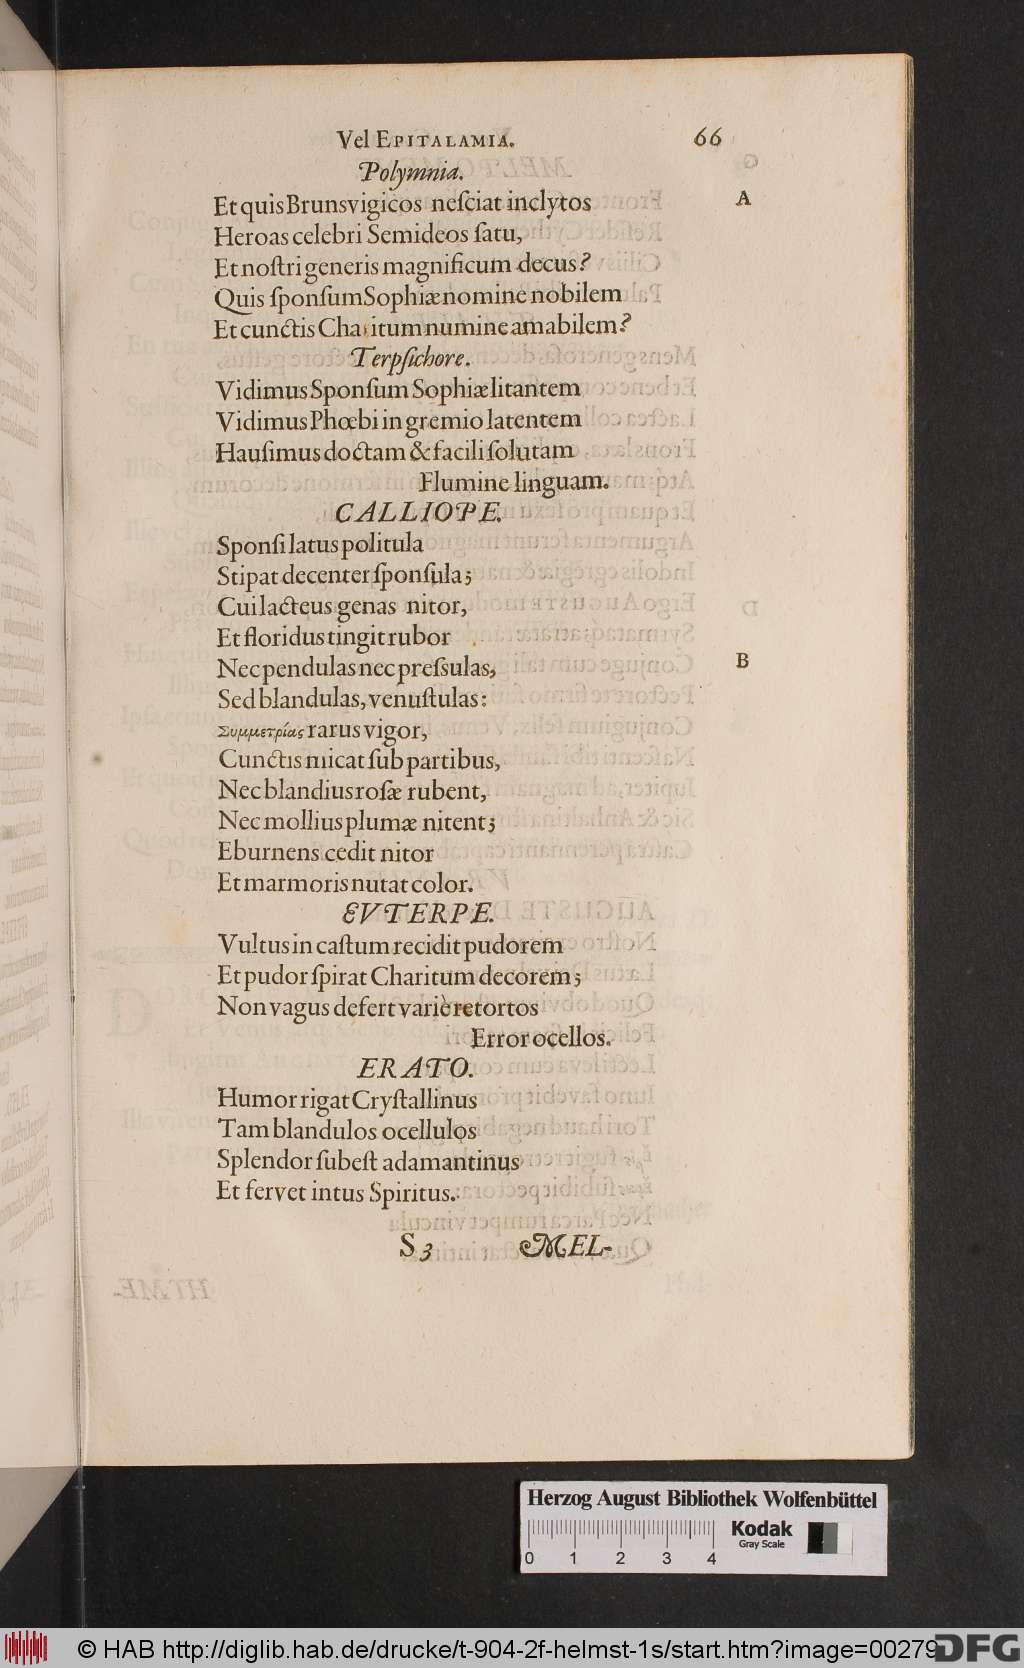 Vel EPITALAMIA. 66
Polymnia.
Et quis Brunsvigicos neſciat inclytos A
Heroas celebri Semideos ſatu,
Et noſtri generis magnificum decus?
Quis ſponſum Sophiæ nomine nobilem
Et cunctis Charitum numine amabilem?
Terpſichore.
Vidimus Sponſum Sophiæ litantem
Vidimus Phœbi in gremio latentem
Hauſimus doctam & facili ſolutam
Flumine linguam.
CALLIOPE.
Sponſi latus politula
Stipat decenter ſponſula;
Cui lacteus genas nitor,
Et floridus tingit rubor
Nec pendulas nec preſsulas, B
Sed blandulas, venuſtulas:
Συμμετρίας rarus vigor,
Cunctis micat ſub partibus,
Nec blandius roſæ rubent,
Nec mollius plumæ nitent;
Eburnens cedit nitor
Et marmoris nutat color.
EVTERPE.
Vultus in caſtum recidit pudorem
Et pudor ſpirat Charitum decorem;
Non vagus defert variè retortos
Error ocellos.
ERATO.
Humor rigat Cryſtallinus
Tam blandulos ocellulos
Splendor ſubeſt adamantinus
Et fervet intus Spiritus.
S 3 MEL-
Herzog August Bibliothek Wolfenbüttel
Kodak
Gray Scale
0 1 2 3 4
© HAB http://diglib.hab.de/drucke/t-904-2f-helmst-1s/start.htm?image=00279
DFG